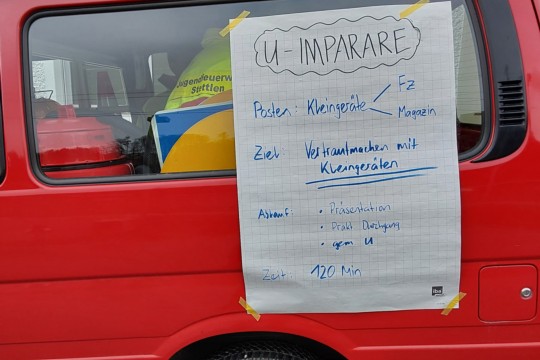 Jugendfeuerw
Süttlen
U-IMPARARE
Posten: Kleingeräte
Fz
Magazin
Ziel: Vertrautmachen mit
Kleingeräten
Ablauf: • Präsentation
• Prakt Durchgang
• gem U
Zeit: 120 Min
iba